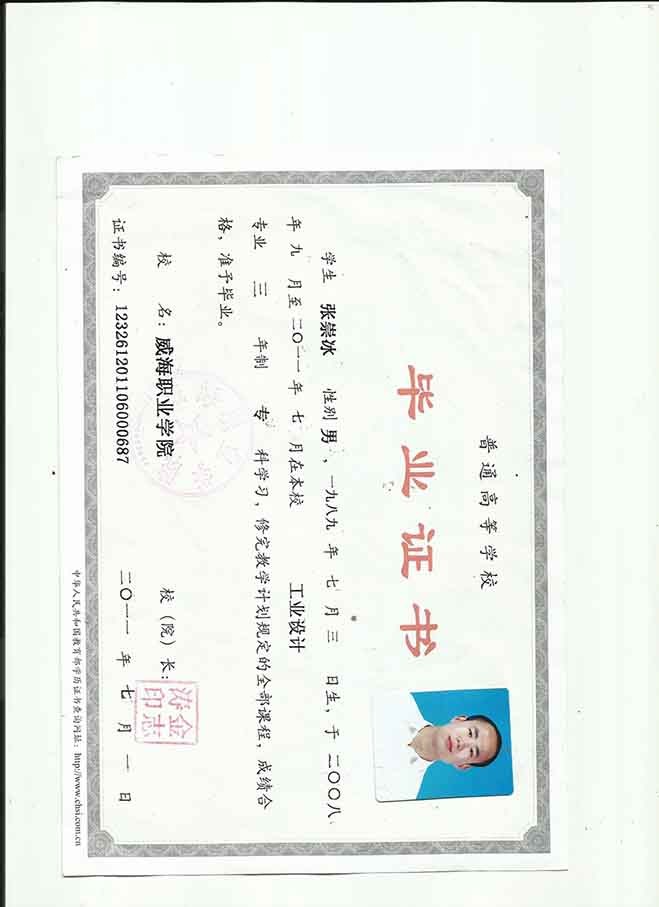 普通高等学校
毕业证书
学生 张崇冰 性别 男，一九八九 年 七 月 三 日生，于 二〇〇八
年 九 月至 二〇一一 年 七 月在本校 工业设计
专业 三 年制 专 科学习，修完教学计划规定的全部课程，成绩合
格，准予毕业。
校 名：威海职业学院 校（院）长：
金志
印
证书编号：123261201106000687 二〇一一 年 七 月 一 日
中华人民共和国教育部学历证书查询网址：http://www.chsi.com.cn